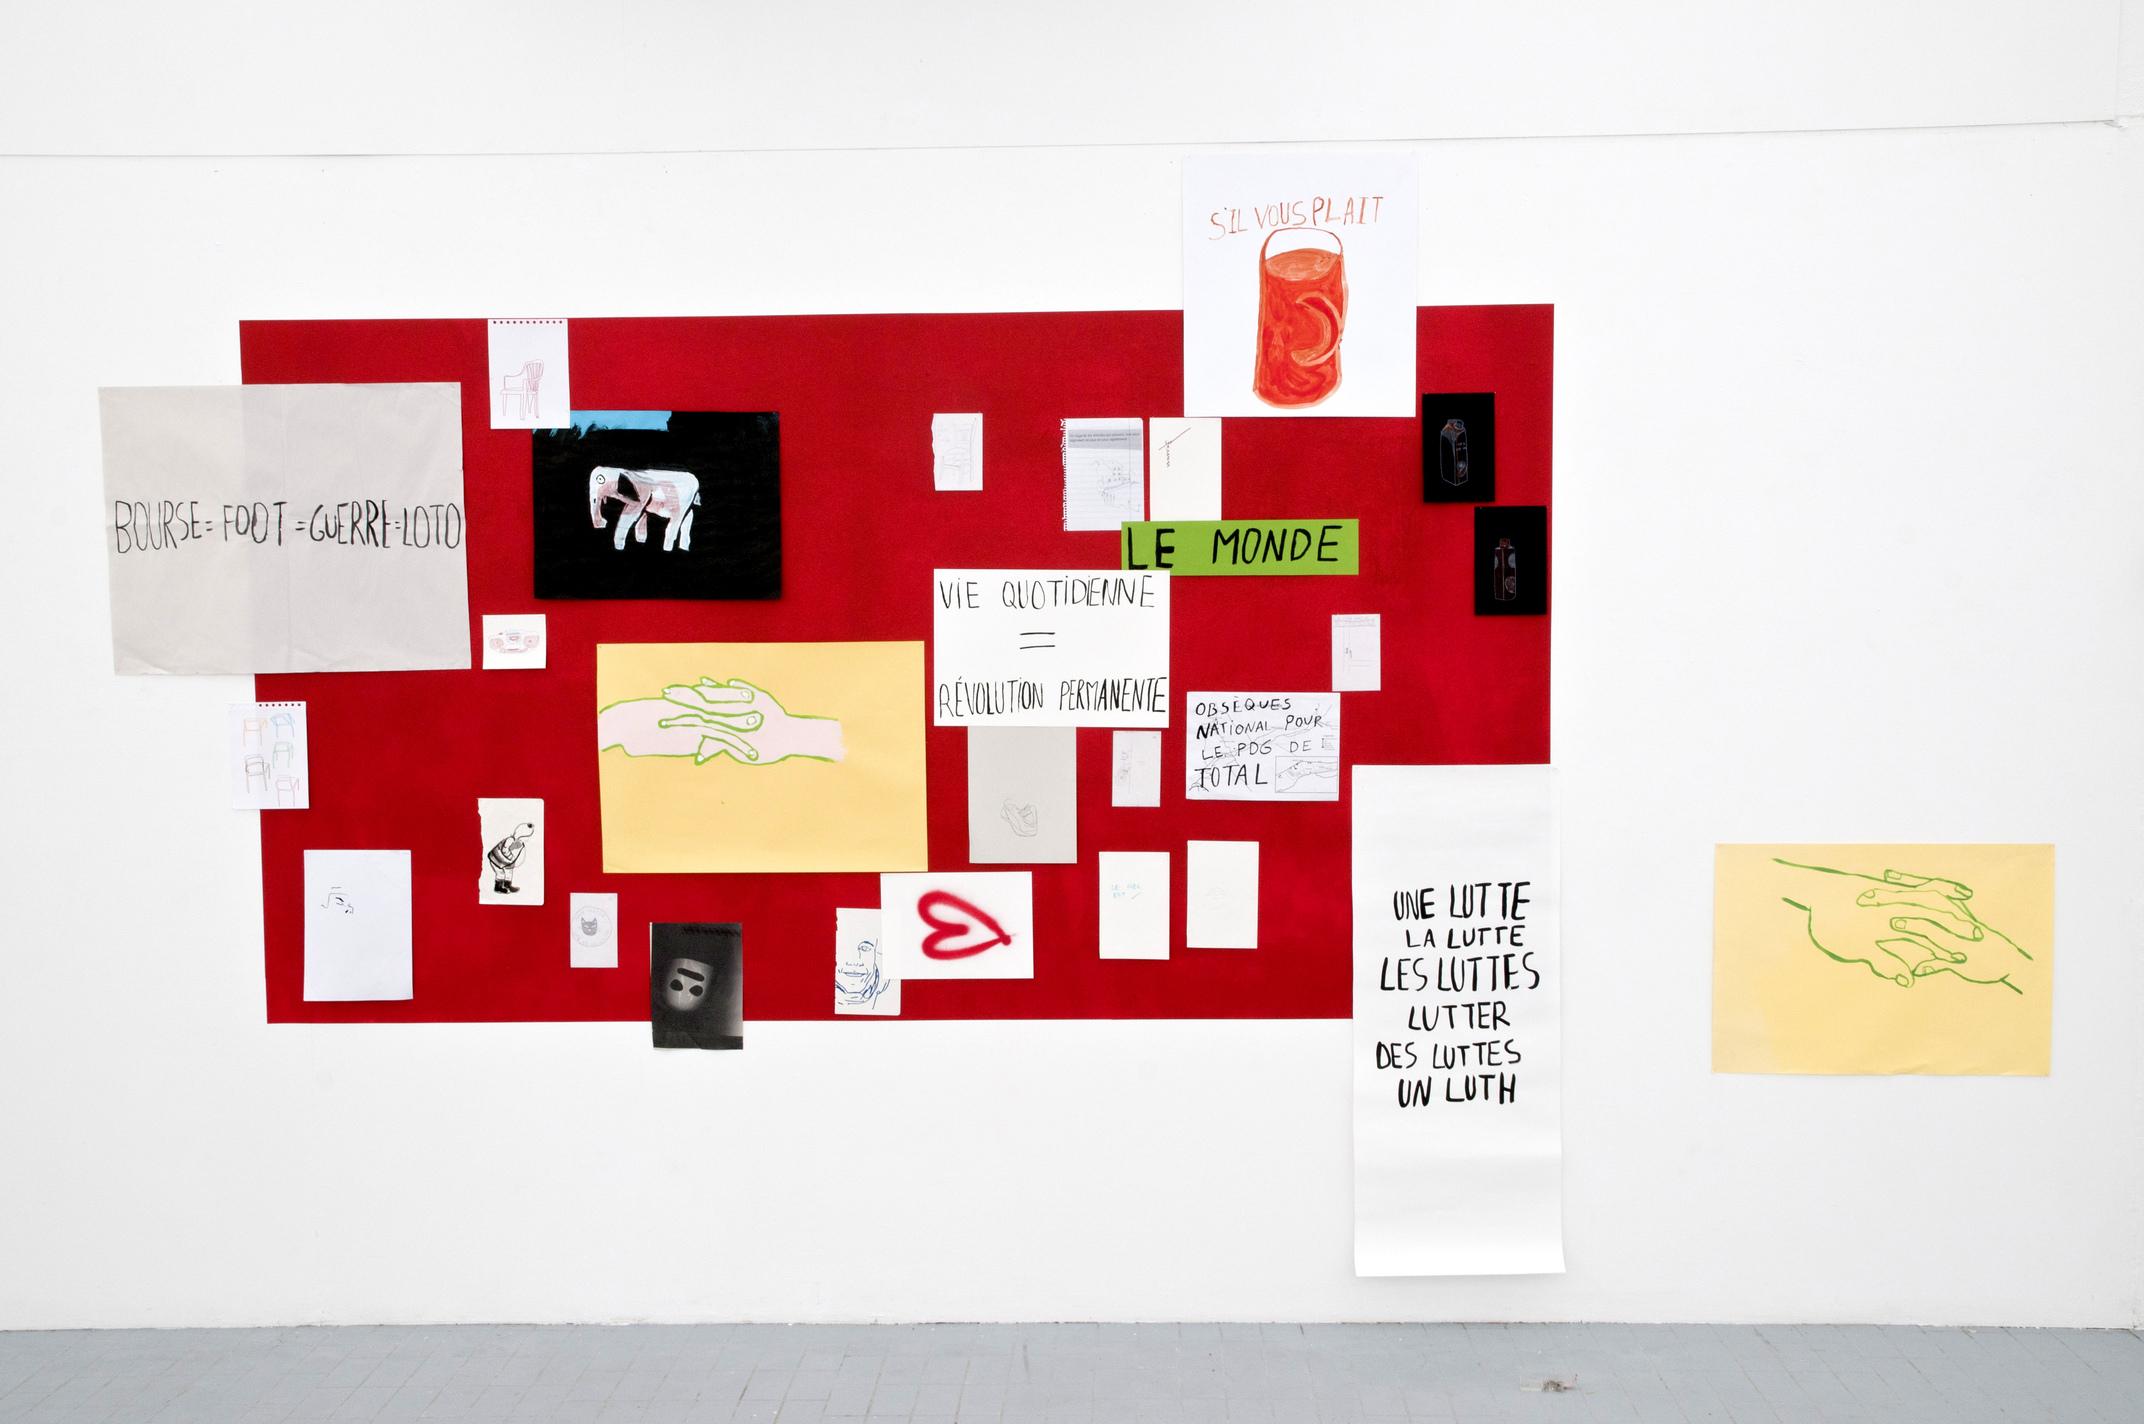 S'IL VOUS PLAIT
BOURSE = FOOT = GUERRE = LOTO
LE MONDE
VIE QUOTIDIENNE
=
RÉVOLUTION PERMANENTE
OBSÈQUES
NATIONAL POUR
LE PDG DE
TOTAL
UNE LUTTE
LA LUTTE
LES LUTTES
LUTTER
DES LUTTES
UN LUTH